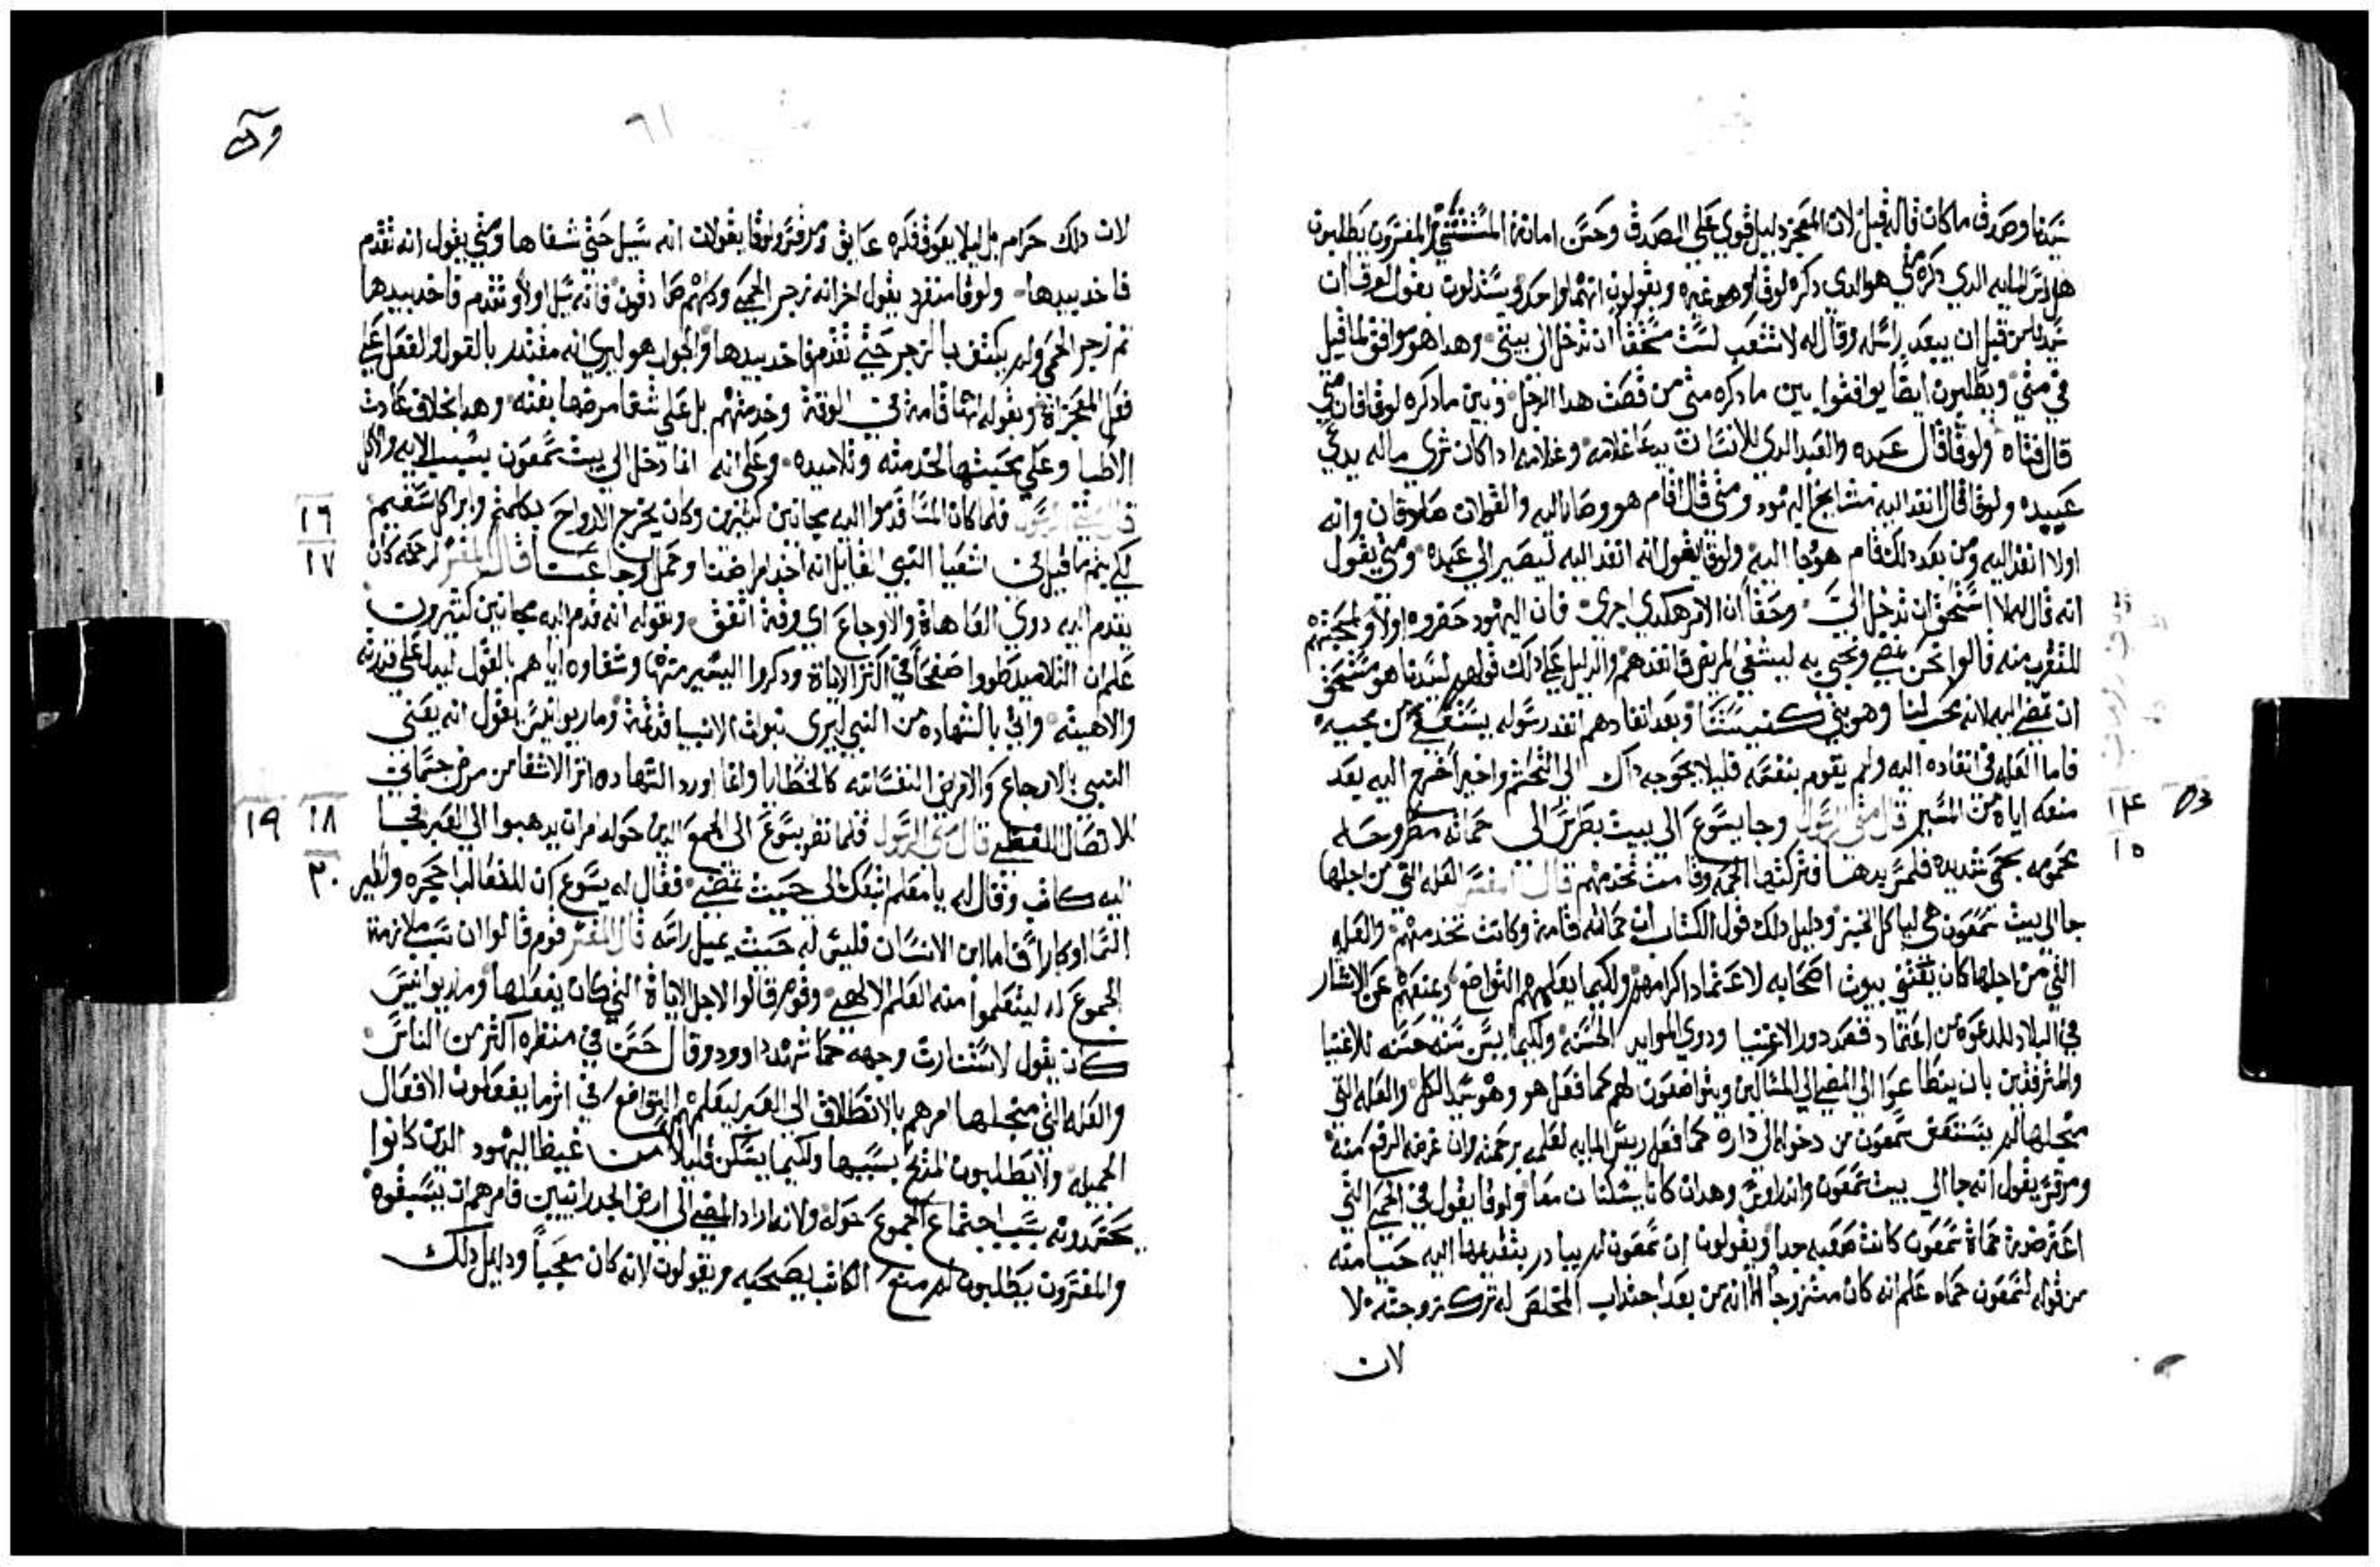 سيدنا وصدق ما كان قاله قيل لان المعجز دليل قوي علي الصدق وحسن امانة المستشفي المفسرون يطلبون
هل ريس المايه الدي دكره متي هو الدي دكره لوقا او هو غيره ويقولون انهما واحد ويستدلون بقول لوقا ان
سيدنا من قبل ان يبعد راسله وقال له لا تتعب لست مستحقا ان تدخل الي بيتي وهدا هو موافق لما قيل
في متي ويطلبون ايضا يوافقوا بين ما دكره متي من قصت هدا الرجل وبين ما دكره لوقا فان متي
قال فتاه ولوقا قال عبده والعبد الدي للانسان يدعا غلامه وغلامه ادا كان شري ماله يدعي
عبيده ولوقا قال انفد اليه مشايخ اليهود ومتي قال اقام هو وصانا اليه والقولان صادقان وانه
اولا انفد اليه ومن بعد دلك قام هو وجا اليه ولوقا يقول انه انفد اليه ليصير الي عبده ومتي يقول
انه قال له لا استحق ان تدخل الي وحقا ان الامر هكدي اجري فان اليهود حضروه اولا ولمحبتهم
للتقرب منه قالوا نحن نمضي ونجي به ليشفي المريض فانفدهم والدليل علي دلك قولهم لسيدنا هو مستحق
ان تمضي اليه لانه محب لنا وهو بني كنيستنا وبعد انفادهم انفد رسوله يستعفي من مجيه
فاما العله في انفاده اليه ولم يقوم بنفسه قليلا يحوجه داك الي التجشم واخيرا خرج اليه بعد
منعه اياه من المسير قال متي الرسول وجا يسوع الي بيت بطرس الي حماته مطروحه
محمومه بحمي شديده فلمس يدها فتركتها الحمي وقامت تخدمهم قال المفسر العله التي من اجلها
جا الي بيت سمعون هي لياكل الخبز ودليل دلك قول الكتاب ان حماته قامت وكانت تخدمهم والعله
التي من اجلها كان يغشي بيوت اصحابه لاعتماد اكرامهم ولكيما يعلمهم التواضع ويمنعهم عن الانتشار
في البلاد للدعوه من اعتماد قصد دور الاغنيا ودوي الموايد الحسنه ولكيما يسن سنه حسنه للاغنيا
والمترفقين بان يتطاعوا الي المضي الي المسالين ويتواضعون لهم كما فعل هو وهو سيد الكل والعله التي
منجلها لم يستعفي سمعون من دخوله الي داره كما فعل ريس المايه لعلمه برحمته وان غرضه الرفع منه
ومرقس يقول انه جا الي بيت سمعون واندراوس وهدان كانا يسكنان معا ولوقا يقول في الحمي التي
اعترضت حماة سمعون كانت صعبه جدا ويقولون ان سمعون لم يبادر بتقديمها اليه حيا منه
من قوله لسمعون حماه علم انه كان متزوجا الا انه من بعد اجتداب المخلص له ترك زوجته لا
لان
١٤
١٥
٦١
لان دلك حرام بل ليلا يعوق فكره عايق ومرقس ولوقا يقولان انه سيل حتي شفاها ومتي يقول انه تقدم
فاخد بيدها ولوقا منفرد يقول اخرا انه زجر الحمي وكلهم صادقون فانه سيل اولا وتقدم فاخد بيدها
ثم زجر الحمي ولم يكتفي بالزجر حتي تقدم فاخد بيدها والجواب هو ليري انه مقتدر بالقول والفعل علي
فعل المعجزات وبقوله انها قامت في الوقت وخدمتهم بل علي شفا مرضها بغته وهدا بخلاف عادت
الاطبا وعلي محبتها لخدمته وتلاميده وعلي انه انما دخل الي بيت سمعون بسبب الابه والاكل
قال متي الرسول فلما كان المسا قدموا اليه مجانين كتيرين وكان يخرج الارواح بكلمته وابرا كل سقيم
لكي يتم ما قيل في اشعيا النبي القايل انه اخد امراضنا وحمل اوجاعنا قال المفسر لرحمته كان
يقدم اليه دوي العاهات والاوجاع اي وقت اتفق وبقوله انه قدم اليه مجانين كتيرون
علم ان التلاميد طووا صفحا في اكثر الايات ودكروا اليسير منها وشفاوه اياهم بالقول ليدل علي قدرته
والاهيته واتي بالشهاده من النبي ليري نبوات الانبيا قد تمت وماريوانيس يقول انه يعني
النبي بالاوجاع والامراض النفسانيه كالخطايا وانما اورد الشهاده اتر الاشفا من مرض جسماني
للاتصال اللفظي قال متي الرسول فلما نظر يسوع الي الجموع الدين حوله امر ان يدهبوا الي العبر فجا
اليه كاتب وقال له يا معلم اتبعك الي حيت تمضي فقال له يسوع ان للثعالب اجحره ولطير
السما اوكارا فاما ابن الانسان فليس له حيت يميل راسه قال المفسر قوم قالوا ان سبب ملازمة
الجموع له ليتعلموا منه العلم الالهي وقوم قالوا لاجل الايات التي كان يفعلها وماريوانيس
كان يقول لاستنارت وجهه كما شهد داوود وقال حسن في منظره اكثر من الناس
والعله التي منجلها امرهم بالانطلاق الي العبر ليعلمهم التواضع في اثر ما يفعلون الافعال
الجميله ولا يطلبون المدح بسببها ولكيما يسكن قليلا من غيظ اليهود الدين كانوا
يحسدونه بسبب اجتماع الجموع حوله ولانه اراد المضي الي ارض الجدرانيين فامرهم ان يسبقوه
والمفسرون يطلبون لم منع الكاتب يصحبه ويقولون لانه كان معجبا ودليل دلك
١٦
١٧
١٨
١٩
٢٠